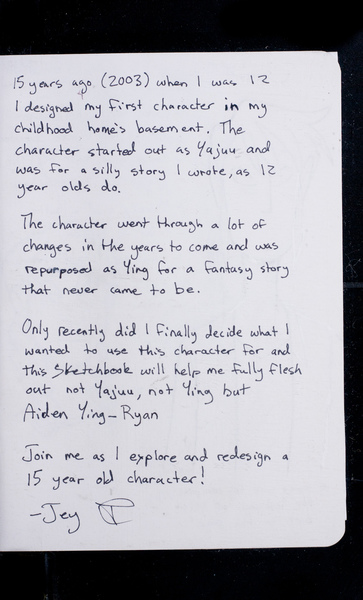 15 years ago (2003) when I was 12
I designed my first character in my
childhood home's basement. The
character started out as Yajuu and
was for a silly story I wrote, as 12
year olds do.
The character went through a lot of
changes in the years to come and was
repurposed as Ying for a fantasy story
that never came to be.
Only recently did I finally decide what I
wanted to use this character for and
this sketchbook will help me fully flesh
out not Yajuu, not Ying but
Aiden Ying-Ryan
Join me as I explore and redesign a
15 year old character!
-Jey